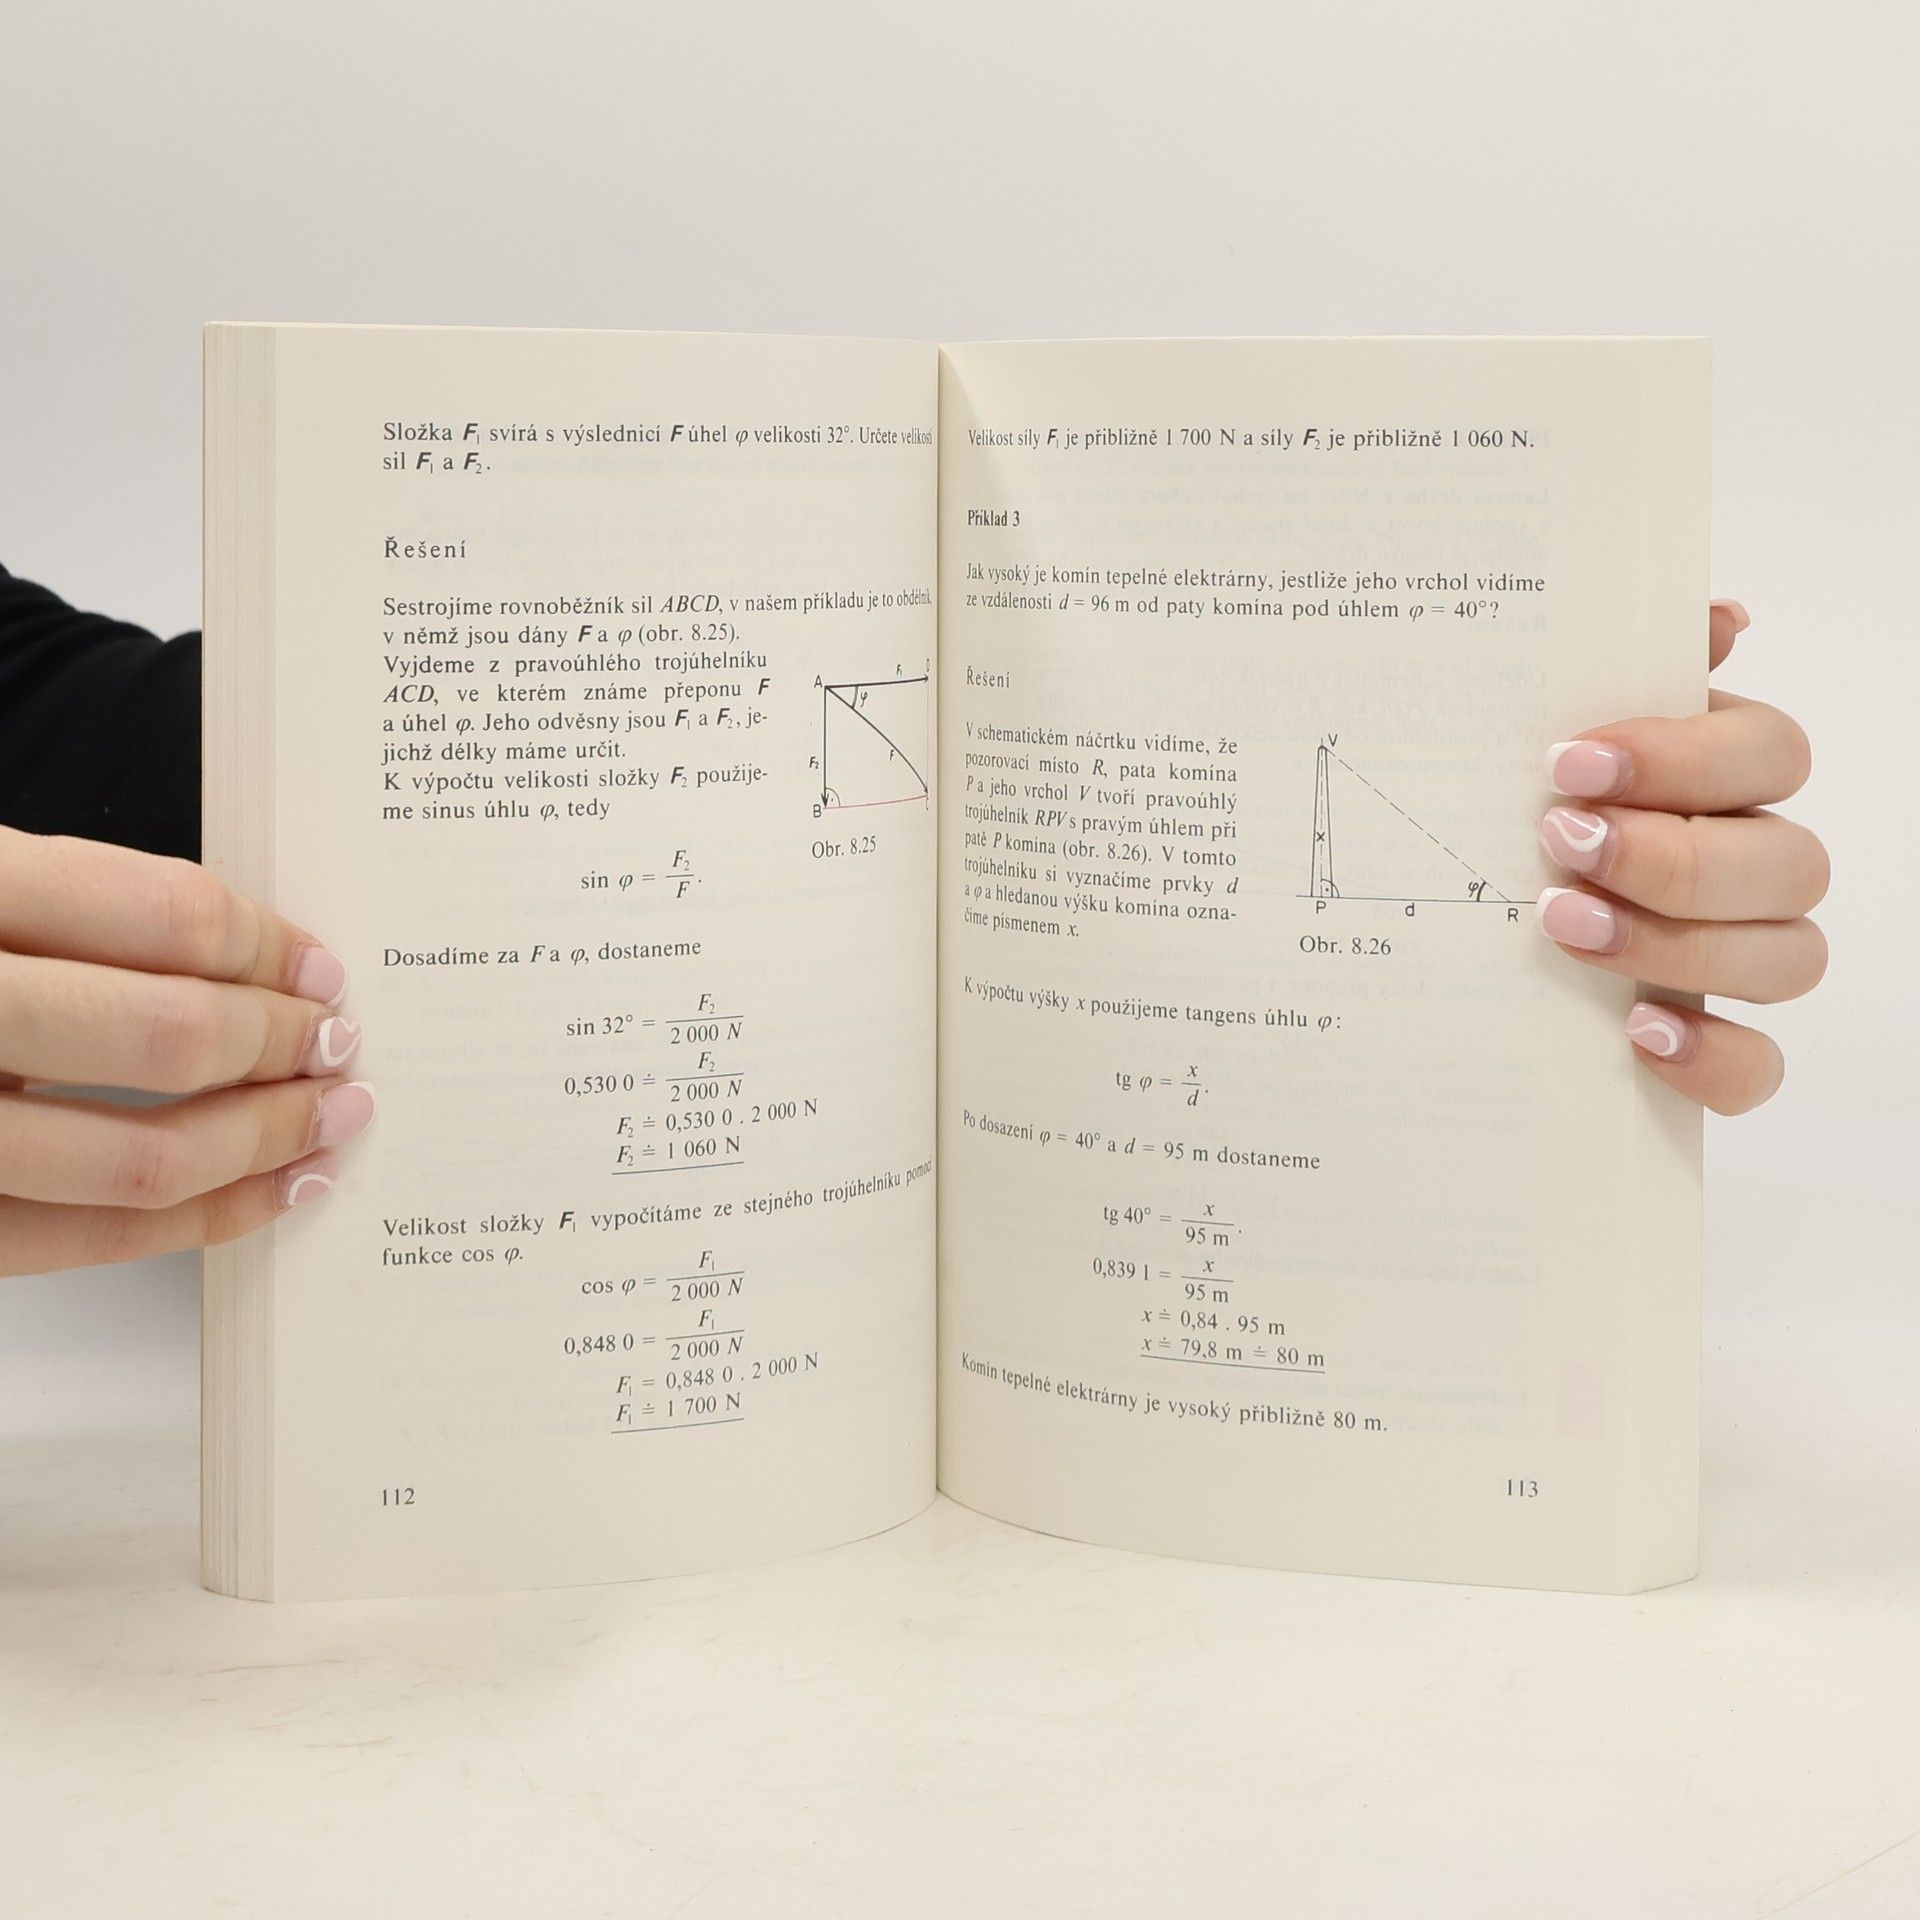 Složka F₁ svírá s výslednicí F úhel φ velikosti 32°. Určete velikosti
sil F₁ a F₂.
Řešení
Sestrojíme rovnoběžník sil ABCD, v našem příkladu je to obdélník,
v němž jsou dány F a φ (obr. 8.25).
Vyjdeme z pravoúhlého trojúhelníku
ACD, ve kterém známe přeponu F
a úhel φ. Jeho odvěsny jsou F₁ a F₂, je-
jichž délky máme určit.
K výpočtu velikosti složky F₂ použije-
me sinus úhlu φ, tedy
A F₁ D
φ
F₂ F
B C
Obr. 8.25
sin φ = F₂/F.
Dosadíme za F a φ, dostaneme
sin 32° = F₂/2 000 N
0,530 0 ≐ F₂/2 000 N
F₂ ≐ 0,530 0 . 2 000 N
F₂ ≐ 1 060 N
Velikost složky F₁ vypočítáme ze stejného trojúhelníku pomocí
funkce cos φ.
cos φ = F₁/2 000 N
0,848 0 = F₁/2 000 N
F₁ = 0,848 0 . 2 000 N
F₁ ≐ 1 700 N
112
Velikost síly F₁ je přibližně 1 700 N a síly F₂ je přibližně 1 060 N.
Příklad 3
Jak vysoký je komín tepelné elektrárny, jestliže jeho vrchol vidíme
ze vzdálenosti d = 96 m od paty komína pod úhlem φ = 40°?
Řešení
V schematickém náčrtku vidíme, že
pozorovací místo R, pata komína
P a jeho vrchol V tvoří pravoúhlý
trojúhelník RPV s pravým úhlem při
patě P komína (obr. 8.26). V tomto
trojúhelníku si vyznačíme prvky d
a φ a hledanou výšku komína ozna-
číme písmenem x.
V
x
φ
P d R
Obr. 8.26
K výpočtu výšky x použijeme tangens úhlu φ:
tg φ = x/d.
Po dosazení φ = 40° a d = 95 m dostaneme
tg 40° = x/95 m.
0,839 1 = x/95 m
x ≐ 0,84 . 95 m
x ≐ 79,8 m ≐ 80 m
Komín tepelné elektrárny je vysoký přibližně 80 m.
113